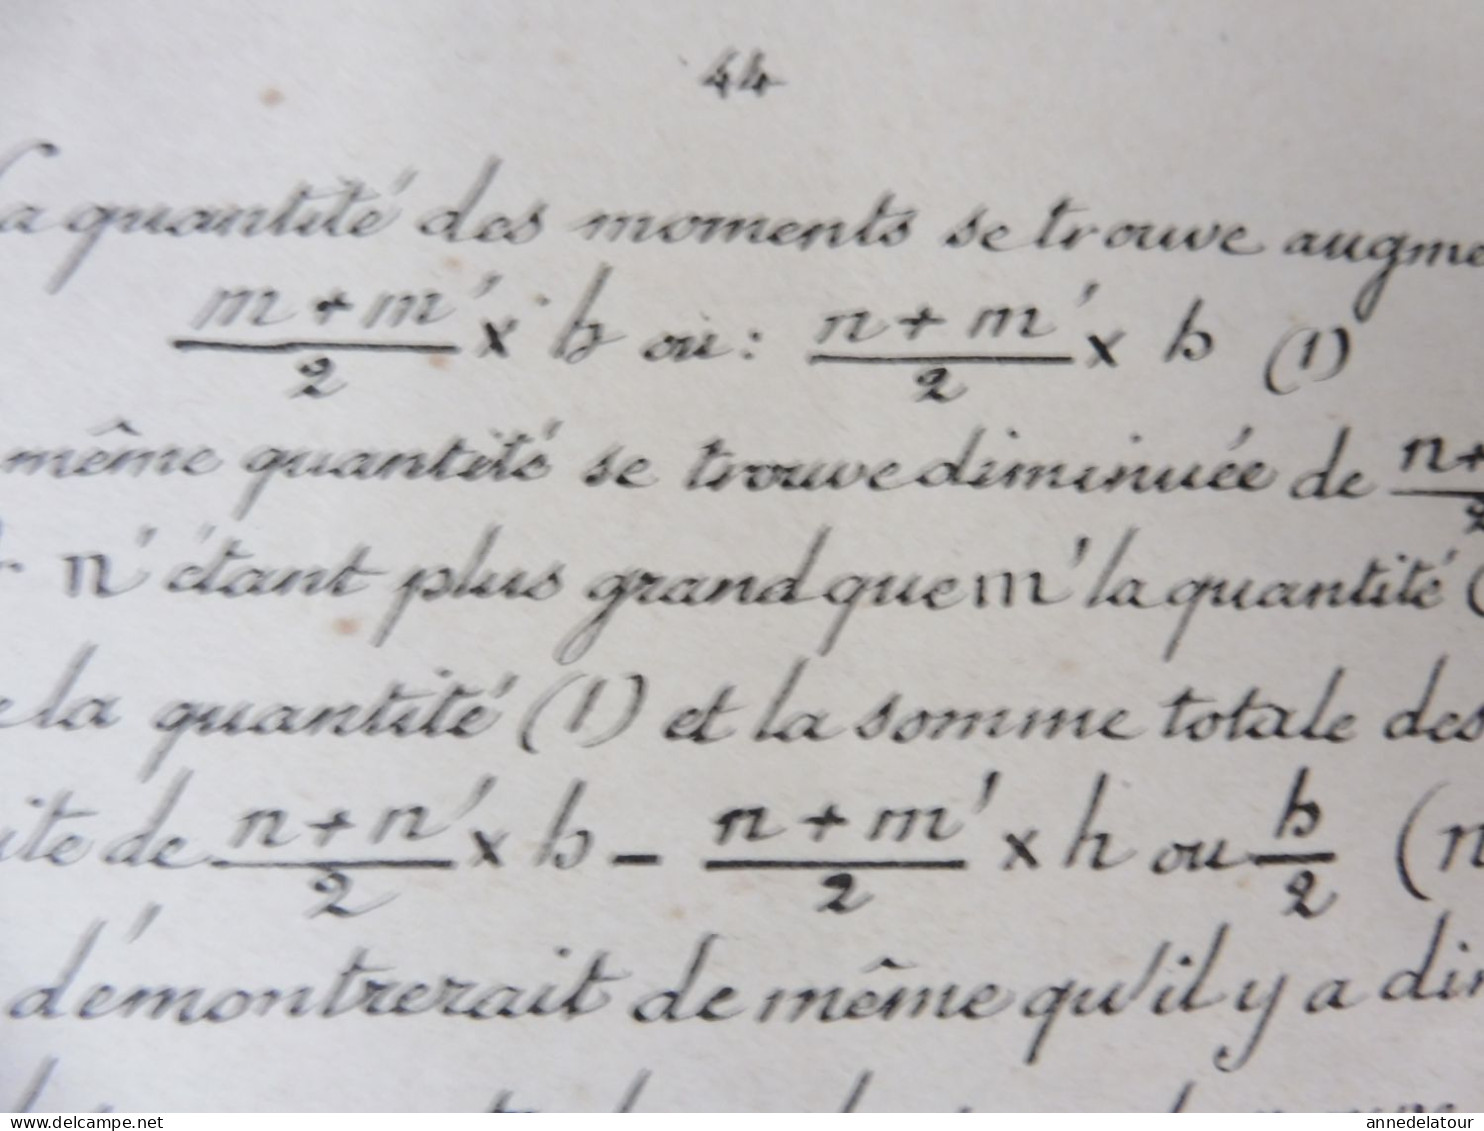 44
la quantité des moments se trouve augme
m + m' / 2 × h ou : n + m' / 2 × h (1)
même quantité se trouve diminuée de n+
n' étant plus grand que m' la quantité (
la quantité (1) et la somme totale des
ite de n + n' / 2 × h - n + m' / 2 × h ou h / 2 (n
démontrerait de même qu'il y a di
www.delcampe.net
annedelatour